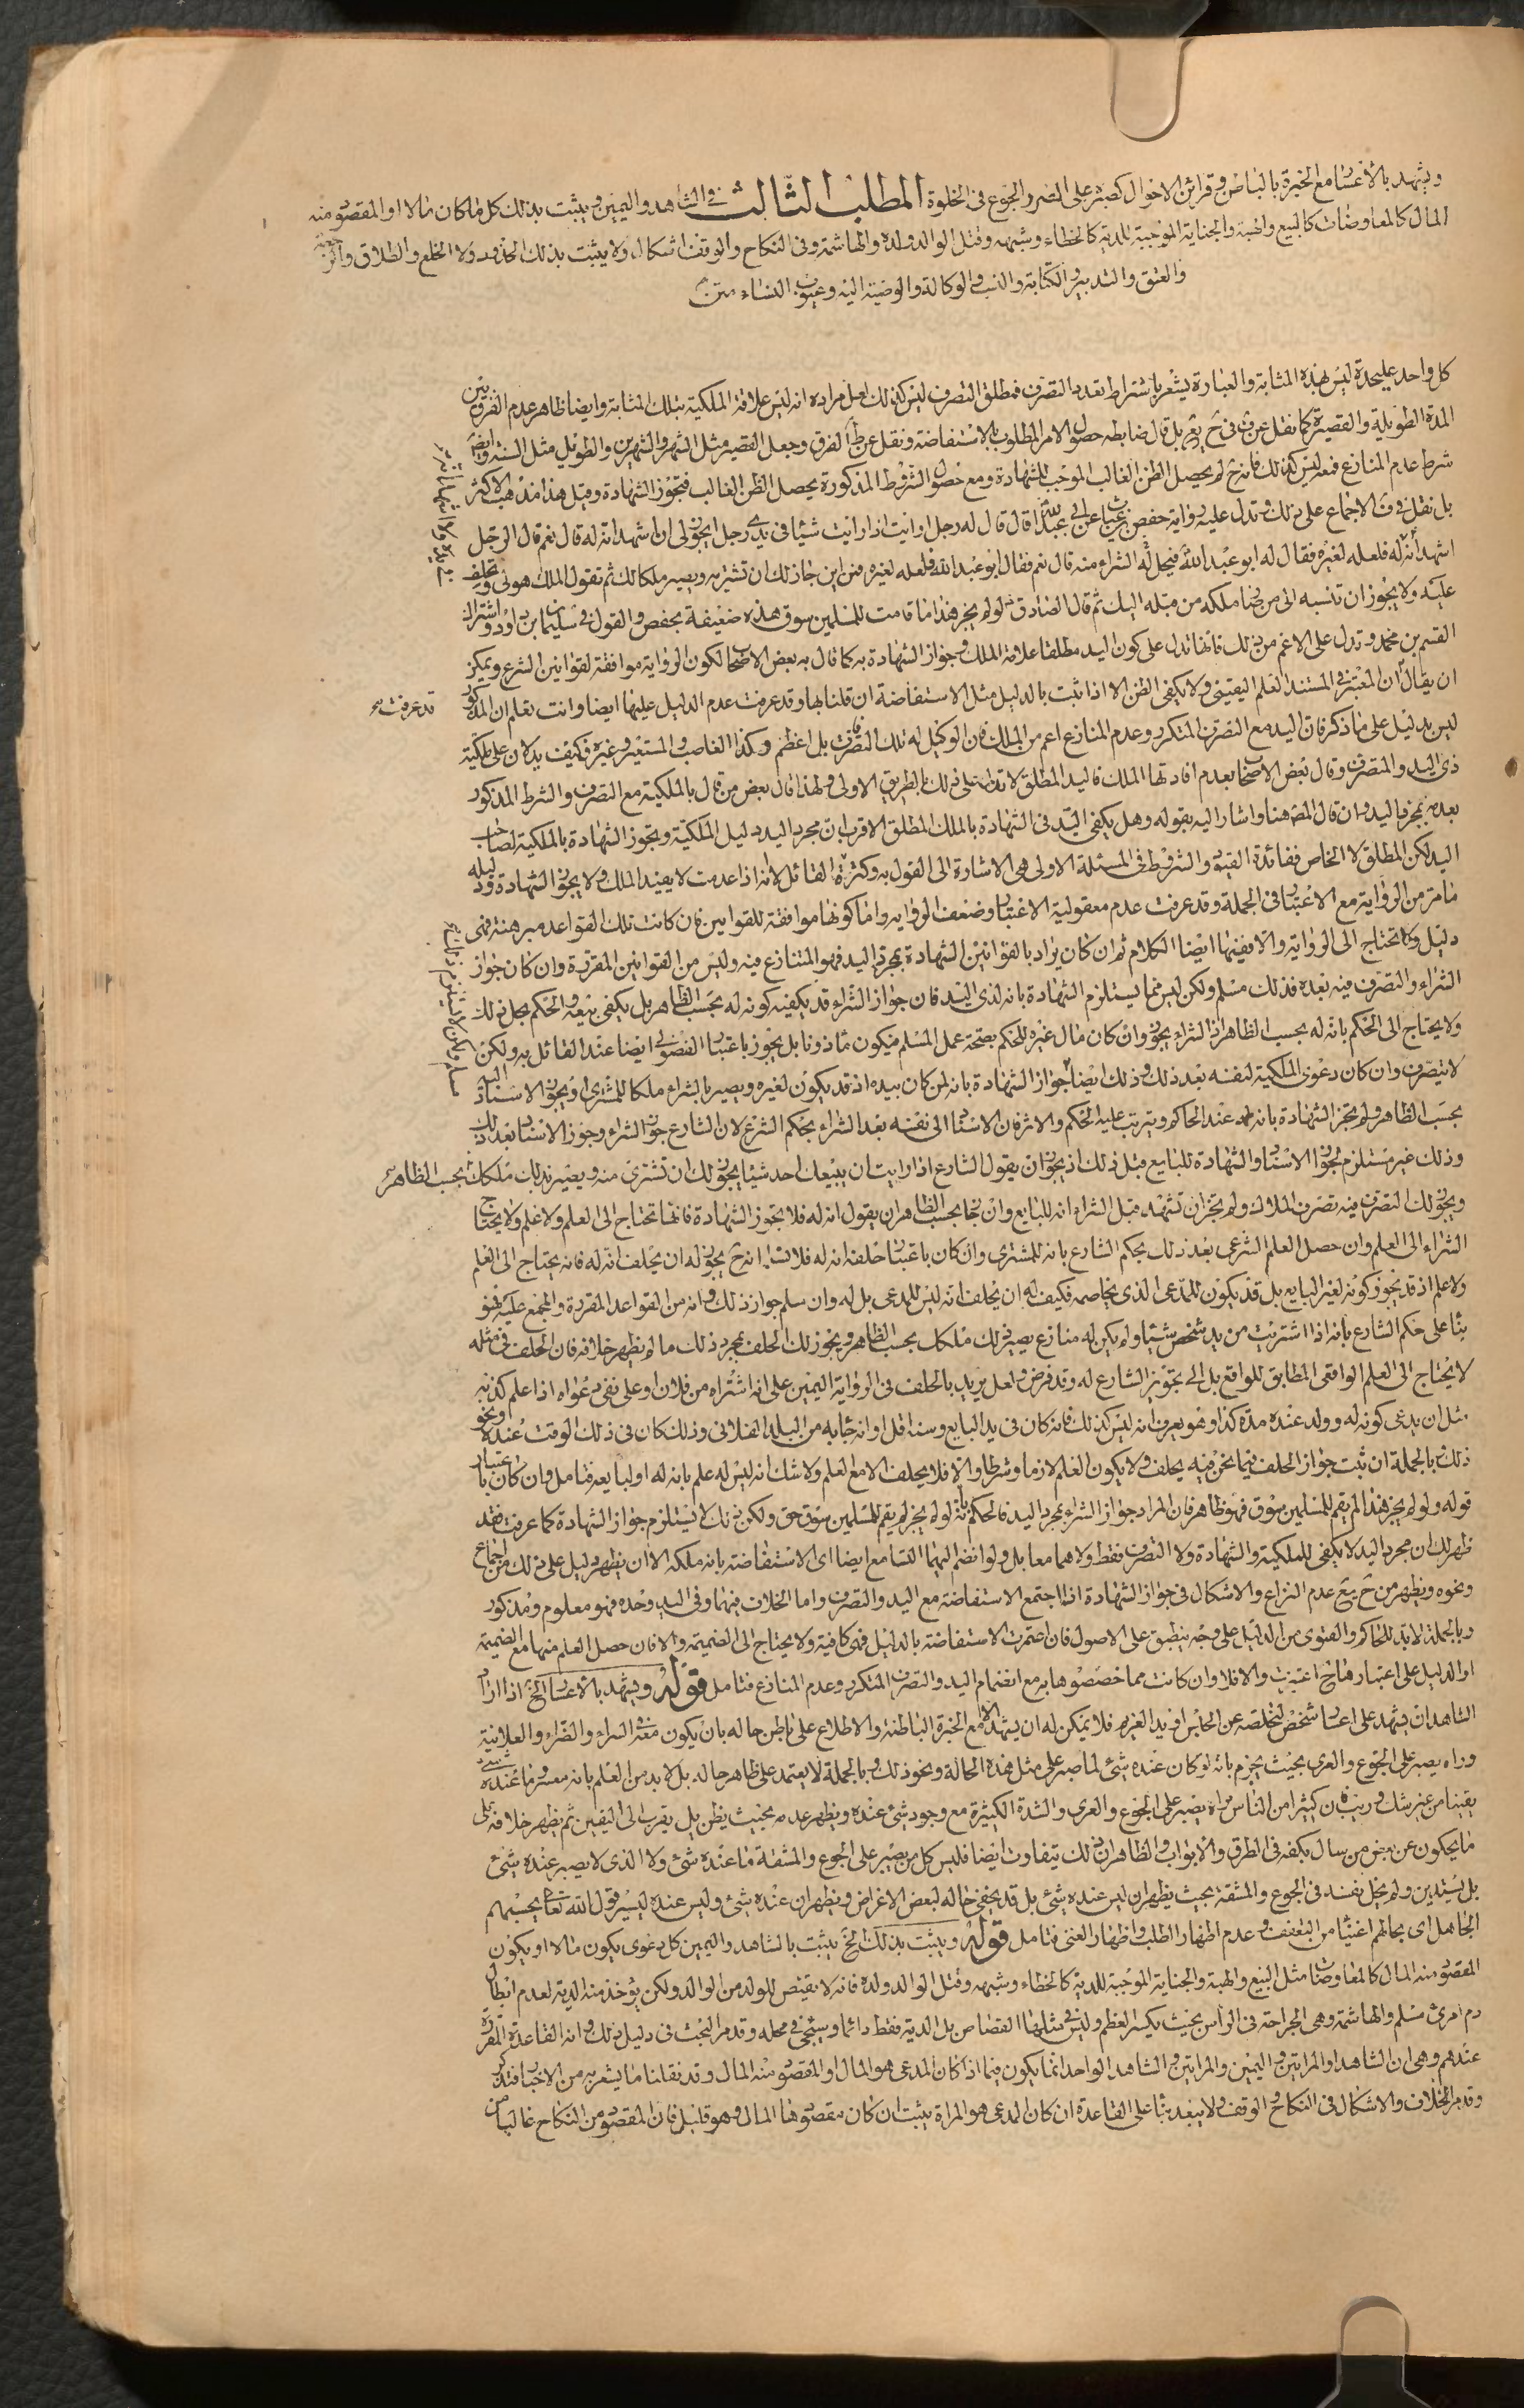 ويشهد بالاعسار مع الخبرة بالباطن وقرائن الاحوال كصبره على الضر والجوع فى الخلوة المطلب الثالث فى الشاهد واليمين ويثبت بذلك كل ما كان مالا او المقصود منه
المال كالمعاوضات كالبيع والهبة والجناية الموجبة للدية كالخطاء وشبهه وقتل الوالد ولده والهاشمة وفى النكاح والوقف اشكال ولا يثبت بذلك الحدود ولا الخلع والطلاق والرجعة
والعتق والتدبير والكتابة والنسب والوكالة والوصية اليه وعيوب النساء متن
كل واحد عليحدة ليس بهذه المثابة والعبارة يشعر باشتراط تعدد التصرف فمطلق التصرف ليس كذلك لعل مراده انه ليس علاقة الملكية بتلك المثابة وايضا ظاهر عدم الفرق بين
المدة الطويلة والقصيرة كما نقل عن فى بل قال ضابطه حصول الامر المطلوب بالاستفاضة ونقل عن ط الفرق وجعل القصير مثل الشهر والشهرين والطويل مثل السنة وايضا
شرط عدم المنازع فمعه ليس كذلك فانه ح لم يحصل الظن الغالب الموجب للشهادة ومع حصول الشروط المذكورة يحصل الظن الغالب فتجوز الشهادة وقيل هذا مذهب الاكثر
بل نقل فى ف الاجماع على ذلك وتدل عليه رواية حفص بن غياث عن ابى عبد الله قال قال له رجل ارايت اذا رايت شيئا فى يدى رجل ايجوز لى ان اشهد انه له قال نعم قال الرجل
اشهد انه له فلعله لغيره فقال له ابو عبد الله فيحل له الشراء منه قال نعم فقال ابو عبد الله فلعله لغيره فمن اين جاز لك ان تشتريه ويصير ملكا لك ثم تقول الملك هو لى وتحلف
عليه ولا يجوز ان تنسبه الى من صار ملكه من قبله اليك ثم قال الصادق لو لم يجز هذا ما قامت للمسلمين سوق هذه ضعيفة بحفص والقول فى سليمان بن داود واشتراك
القسم بن محمد وتدل على الاعم من ذلك فانها تدل على كون اليد مطلقا علامة الملك وجواز الشهادة به كما قال به بعض الاصحاب لكون الرواية موافقة لقوانين الشرع ويمكن
ان يقال ان المعتبر فى المستند العلم اليقينى ولا يكفى الظن الا اذا ثبت بالدليل مثل الاستفاضة ان قلنا بها وقد عرفت عدم الدليل عليها ايضا وانت تعلم ان المذكور
ليس بدليل على ما ذكر فان اليد مع التصرف المتكرر وعدم المنازع اعم من الملك فان الوكيل له تلك التصرفات بل اعظم وكذا الغاصب والمستعير وغيره فكيف يدلان على ملكية
ذى اليد والمتصرف وقال بعض الاصحاب بعدم افادتها الملك فاليد المطلق لا تدل على ذلك بالطريق الاولى ولهذا قال بعض من قال بالملكية مع التصرف والشرط المذكور
بعدمه بمجرد اليد وان قال المصـ هنا واشار اليه بقوله وهل يكفى اليد فى الشهادة بالملك المطلق الاقرب ان مجرد اليد دليل الملكية وتجوز الشهادة بالملكية لصاحب
اليد لكن المطلق لا الخاص ففائدة القيود والشروط فى المسئلة الاولى هى الاشارة الى القول به وكثرة القائل لا انه اذا عدمت لا يفيد الملك ولا يجوز الشهادة ودليله
ما مر من الرواية مع الاعتبار فى الجملة وقد عرفت عدم معقولية الاعتبار وضعف الرواية واما كونها موافقة للقوانين فان كانت تلك القواعد مبرهنة فهى
دليل ولا تحتاج الى الرواية والا ففيها ايضا الكلام ثم ان كان يراد بالقوانين الشهادة بمجرد اليد فهو المتنازع فيه وليس من القوانين المقررة وان كان جواز
الشراء والتصرف فيه بعده فذلك مسلم ولكن ليس مما يستلزم الشهادة بانه لذى اليد فان جواز الشراء قد يكفيه كونه له بحسب الظاهر بل يكفى بيعه والحكم بحل ذلك
ولا يحتاج الى الحكم بانه له بحسب الظاهر اذ الشراء يجوز وان كان مال غيره للحكم بصحة عمل المسلم فيكون ماذونا بل يجوز باعتبار الفضولى ايضا عند القائل به ولكن
لا يتصرف وان كان دعوى الملكية لنفسه بعد ذلك وذلك ايضا جواز الشهادة بانه لمن كان بيده اذ قد يكون لغيره ويصير بالشراء ملكا للمشترى ويجوز الاسناد اليه
بحسب الظاهر ولم يجز الشهادة بانه له عند الحاكم ويترتب عليه الحكم والاثر فان الاسناد الى نفسه بعد الشراء بحكم الشرع لان الشارع جوز الشراء وجوز الاسناد بعد ذلك
وذلك غير مستلزم لجواز الاسناد والشهادة للبايع قبل ذلك اذ يجوز ان يقول الشارع اذا رايت ان يبيعك احد شيئا يجوز لك ان تشترى منه ويصير بذلك ملكا لك بحسب الظاهر
ويجوز لك التصرف فيه تصرف الملاك ولم يجز ان تشهد قبل الشراء انه للبايع وان جاز بحسب الظاهر ان يقول انه له فلا يجوز الشهادة فانها تحتاج الى العلم ولا علم ولا يحتاج
الشراء الى العلم وان حصل العلم الشرعى بعد ذلك بحكم الشارع بانه للمشترى وان كان باعتبار حلفه انه له فلا ثم انه ح يجوز له ان يحلف انه له فانه يحتاج الى العلم
ولا علم اذ قد يجوز كونه لغير البايع بل قد يكون للمدعى الذى يخاصمه فكيف له ان يحلف انه ليس للمدعى بل له وان سلم جواز ذلك وانه من القواعد المقررة والمجمع عليه فهو
بناء على حكم الشارع بانه اذا اشتريت من يد شخص شيئا ولم يكن له منازع يصير لك ملكا لك بحسب الظاهر ويجوز لك الحلف بمجرد ذلك ما لم يظهر خلافه فان الحلف فى مثله
لا يحتاج الى العلم الواقعى المطابق للواقع بل الى تجويز الشارع له وقد فرض ولعل يريد بالحلف فى الرواية اليمين على انه اشتراه من فلان او على نفى دعواه اذا علم كذبه
مثل ان يدعى كونه له وولد عنده مدة كذا وهو يعرف انه ليس كذلك فانه كان فى يد البايع وسنه اقل او انه جاء به من البلد الفلانى وذلك كان فى ذلك الوقت عنده او نحو
ذلك بالجملة ان ثبت جواز الحلف فيما نحن فيه يحلف ولا يكون العلم لازما وشرطا والا فلا يحلف الا مع العلم ولا شك انه ليس له علم بانه له او لبايعه فتامل وان كان باعتبار
قوله ولو لم يجز هذا لم يقم للمسلمين سوق فهو ظاهر فان المراد جواز الشراء بمجرد اليد فالحكم بانه لو لم يجز لم يقم للمسلمين سوق حق ولكن ذلك لا يستلزم جواز الشهادة كما عرفت فقد
ظهر لك ان مجرد اليد لا يكفى للملكية والشهادة ولا التصرف فقط ولا هما معا بل ولو انضم اليهما التسامع ايضا اى الاستفاضة بانه ملكه الا ان يظهر دليل على ذلك من اجماع
ونحوه ويظهر من ح يع عدم النزاع والاشكال فى جواز الشهادة اذا اجتمع الاستفاضة مع اليد والتصرف واما الخلاف فيهما وفى اليد وحده فهو معلوم ومذكور
وبالجملة لابد للحاكم والفتوى من الدليل على وجه ينطبق على الاصول فان اعتبرت الاستفاضة بالدليل فهى كافية ولا يحتاج الى الضميمة والا فان حصل العلم منها مع الضميمة
او الدليل على اعتبارها ح اعتبرت والا فلا وان كانت مما خصصوها به مع انضمام اليد والتصرف المتكرر وعدم المنازع فتامل قوله ويشهد بالاعسار الخ اذا اراد
الشاهد ان يشهد على اعسار شخص ليخلصه عن الحبس او يد الغريم فلا يمكن له ان يشهد الا مع الخبرة الباطنة والاطلاع على باطن حاله بان يكون معه فى السراء والضراء والعلانية
وراه يصبر على الجوع والعرى بحيث يجزم بانه لو كان عنده شئ لما صبر على مثل هذه الحالة ونحو ذلك وبالجملة لا يعتمد على ظاهر حاله بل لابد من العلم بانه معسر وما عنده شئ
يقينا من غير شك وريب فان كثيرا من الناس يصبر على الجوع والعرى والشدة الكثيرة مع وجود شئ عنده ويظهر عدمه بحيث يظن بل يقرب الى اليقين ثم يظهر خلافه بل
ما يحكون عن بعض من سال بكفه فى الطرق والابواب والظاهر ان ذلك يتفاوت ايضا فليس كل من يصبر على الجوع والمشقة ما عنده شئ ولا الذى لا يصبر عنده شئ
بل يستدين ولم يخل نفسه فى الجوع والمشقة بحيث يظهر ان ليس عنده شئ بل قد يخفى حاله لبعض الاغراض ويظهر ان عنده شئ وليس عنده ليسير قول الله تعالى يحسبهم
الجاهل اى بحالهم اغنياء من التعفف وعدم اظهار الطلب واظهار الغنى فتامل قوله ويثبت بذلك الخ يثبت بالشاهد واليمين كل دعوى يكون مالا او يكون
المقصود منه المال كالمعاوضات مثل البيع والهبة والجناية الموجبة للدية كالخطاء وشبهه وقتل الوالد ولده فانه لا يقتص للولد من الوالد ولكن يؤخذ منه الدية لعدم ابطال
دم امرئ مسلم والهاشمة وهى الجراحة فى الراس بحيث يكسر العظم وليس فى مثلها القصاص بل الدية فقط دائما وسيجئ فى محله وقد مر البحث فى دليل ذلك وانه القاعدة المقررة
عندهم وهى ان الشاهد او المراتين واليمين والمراتين والشاهد الواحد انما يكون فيما اذا كان المدعى هو المال او المقصود منه المال وقد نقلنا ما يشعر به من الاخبار فتذكر
وقد مر الخلاف والاشكال فى النكاح والوقف ولا يبعد بناء على القاعدة ان كان المدعى هو المراة يثبت ان كان مقصودها المال وهو قليل فان المقصود من النكاح غالبا من
قد عرفت